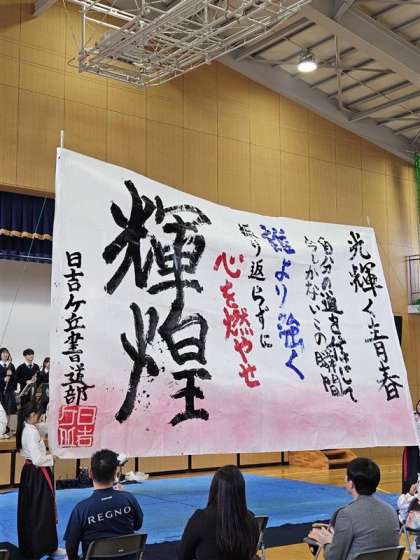 光輝く青春
自分の道を信じて
今しかないこの瞬間
誰より強く
振り返らずに
心を燃やせ
輝煌
日吉ケ丘書道部
日吉
ケ丘
REGNO